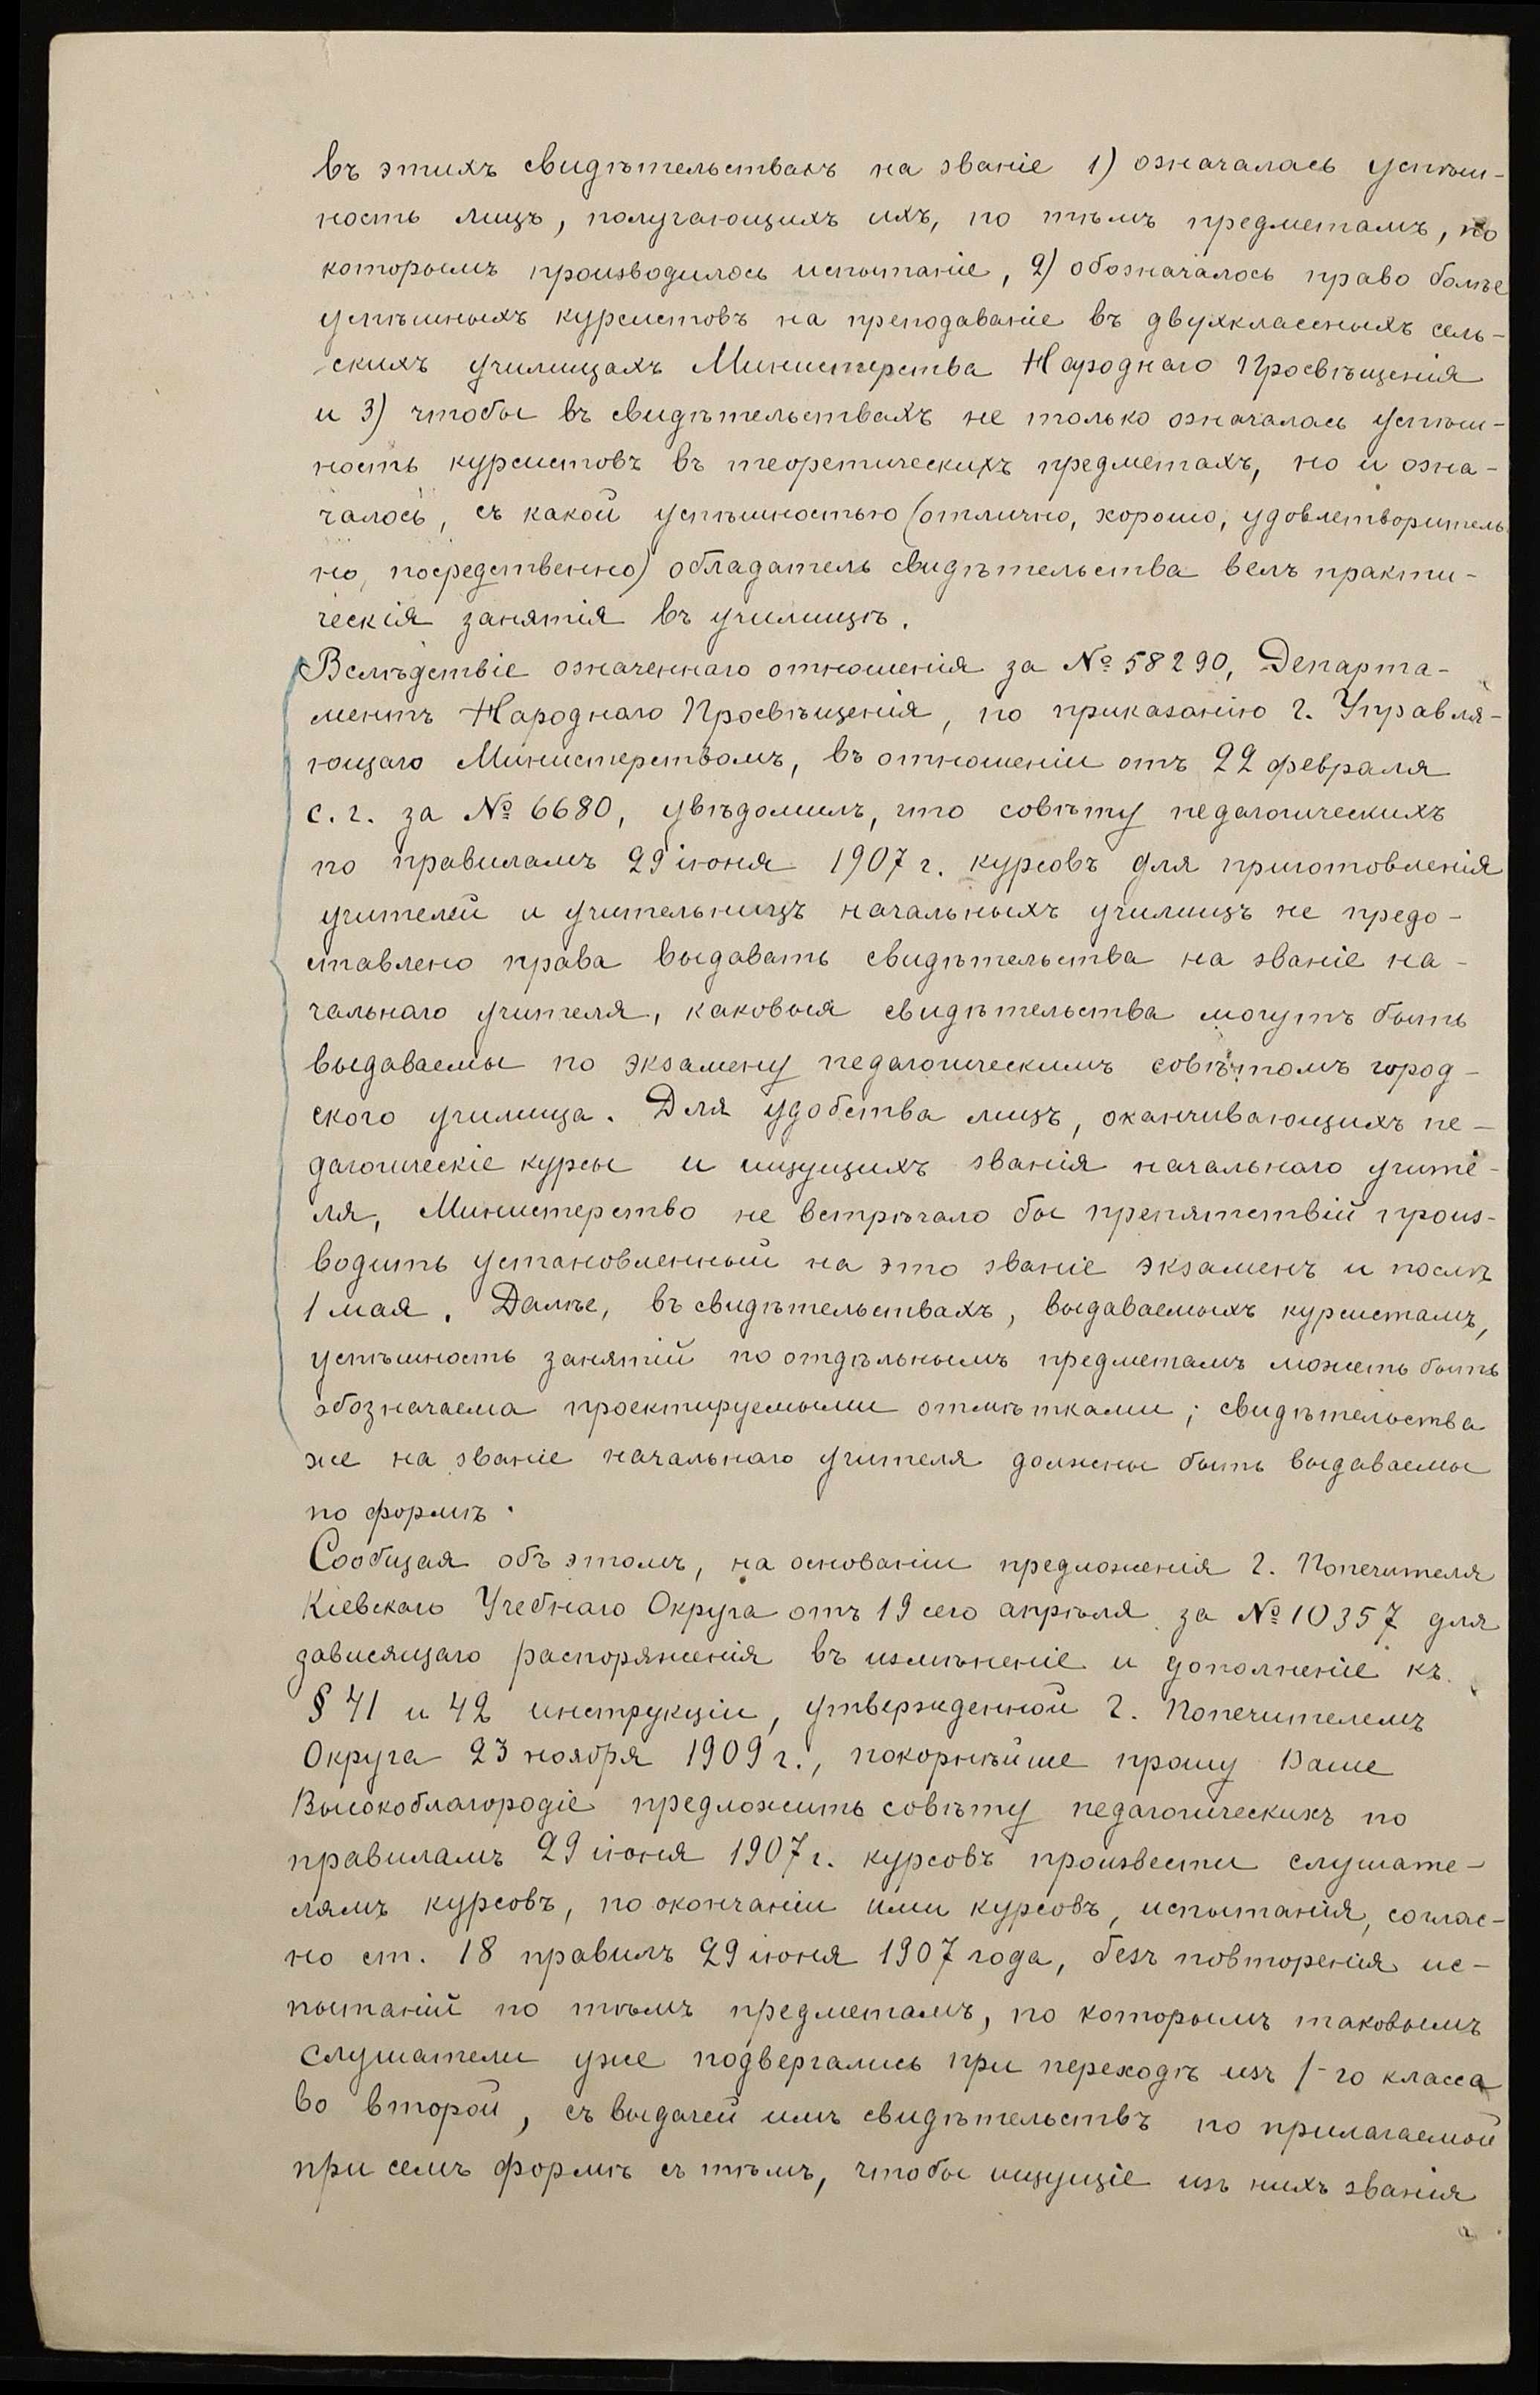 въ этихъ свидѣтельствахъ на званіе 1) означалась успѣш-
ность лицъ, получающихъ ихъ, по тѣмъ предметамъ, по
которымъ производилось испытаніе, 2) обозначалось право болѣе
успѣшныхъ курсистовъ на преподаваніе въ двухклассныхъ сель-
скихъ училищахъ Министерства Народнаго Просвѣщенія
и 3) чтобы въ свидѣтельствахъ не только означалась успѣш-
ность курсистовъ въ теоретическихъ предметахъ, но и озна-
чалось, съ какой успѣшностью (отлично, хорошо, удовлетворитель
но, посредственно) обладатель свидѣтельства велъ практи-
ческія занятія въ училищѣ.
Вслѣдствіе означеннаго отношенія за № 58290, Департа-
ментъ Народнаго Просвѣщенія, по приказанію г. Управля-
ющаго Министерствомъ, въ отношеніи отъ 22 февраля
с. г. за № 6680, увѣдомилъ, что совѣту педагогическихъ
по правиламъ 29 іюня 1907 г. курсовъ для приготовленія
учителей и учительницъ начальныхъ училищъ не предо-
ставлено права выдавать свидѣтельства на званіе на-
чальнаго учителя, каковыя свидѣтельства могутъ быть
выдаваемы по экзамену педагогическимъ совѣтомъ город-
ского училища. Для удобства лицъ, оканчивающихъ пе-
дагогическіе курсы и ищущихъ званія начальнаго учите-
ля, Министерство не встрѣчало бы препятствій произ-
водить установленный на это званіе экзаменъ и послѣ
1 мая. Далѣе, въ свидѣтельствахъ, выдаваемыхъ курсистамъ,
успѣшность занятій по отдѣльнымъ предметамъ можетъ быть
обозначаема проектируемыми отмѣтками; свидѣтельства
же на званіе начальнаго учителя должны быть выдаваемы
по формѣ.
Сообщая объ этомъ, на основаніи предложенія г. Попечителя
Кіевскаго Учебнаго Округа отъ 19 сего апрѣля за № 10357 для
зависящаго распоряженія въ измѣненіе и дополненіе къ
§ 41 и 42 инструкціи, утвержденной г. Попечителемъ
Округа 23 ноября 1909 г., покорнѣйше прошу Ваше
Высокоблагородіе предложить совѣту педагогическихъ по
правиламъ 29 іюня 1907 г. курсовъ произвести слушате-
лямъ курсовъ, по окончаніи ими курсовъ, испытанія, соглас-
но ст. 18 правилъ 29 іюня 1907 года, безъ повторенія ис-
пытаній по тѣмъ предметамъ, по которымъ таковымъ
слушатели уже подвергались при переходѣ изъ 1-го класса
во второй, съ выдачей имъ свидѣтельствъ по прилагаемой
при семъ формѣ съ тѣмъ, чтобы ищущіе изъ нихъ званія